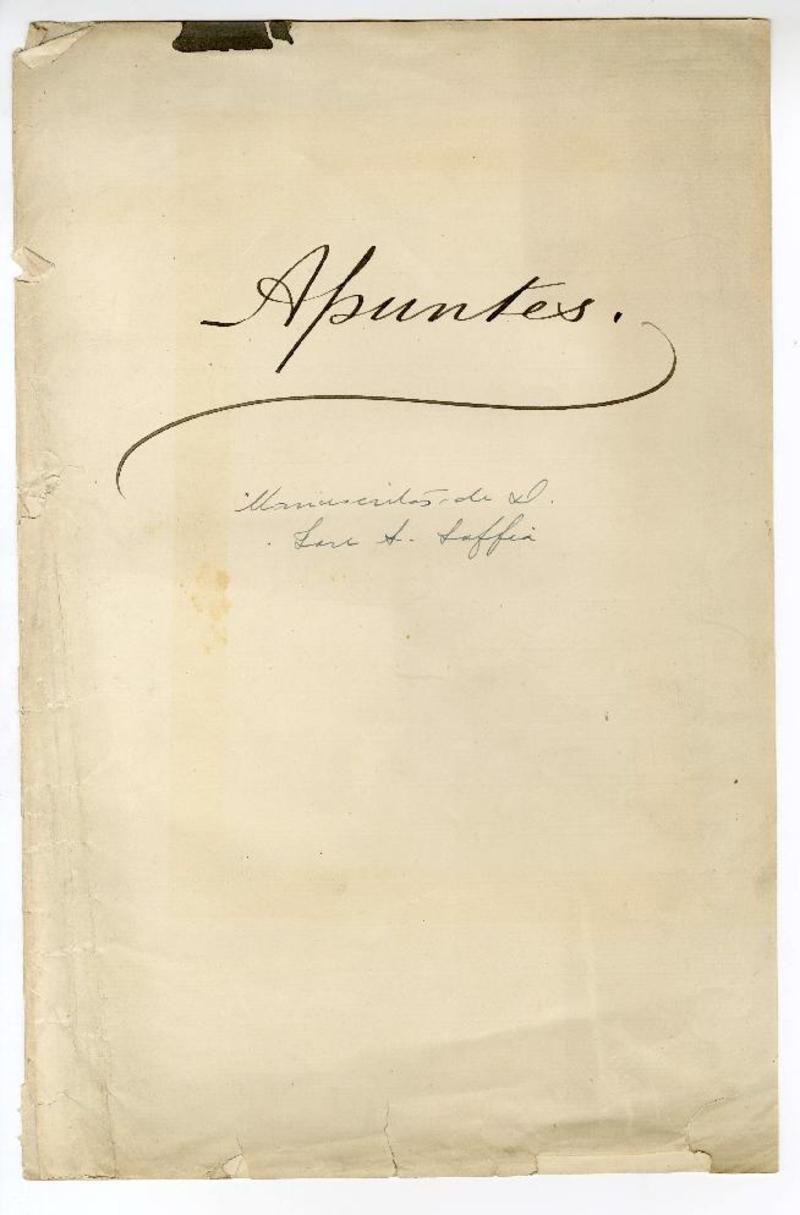 Apuntes.
Manuscritos de D.
José A. Soffia